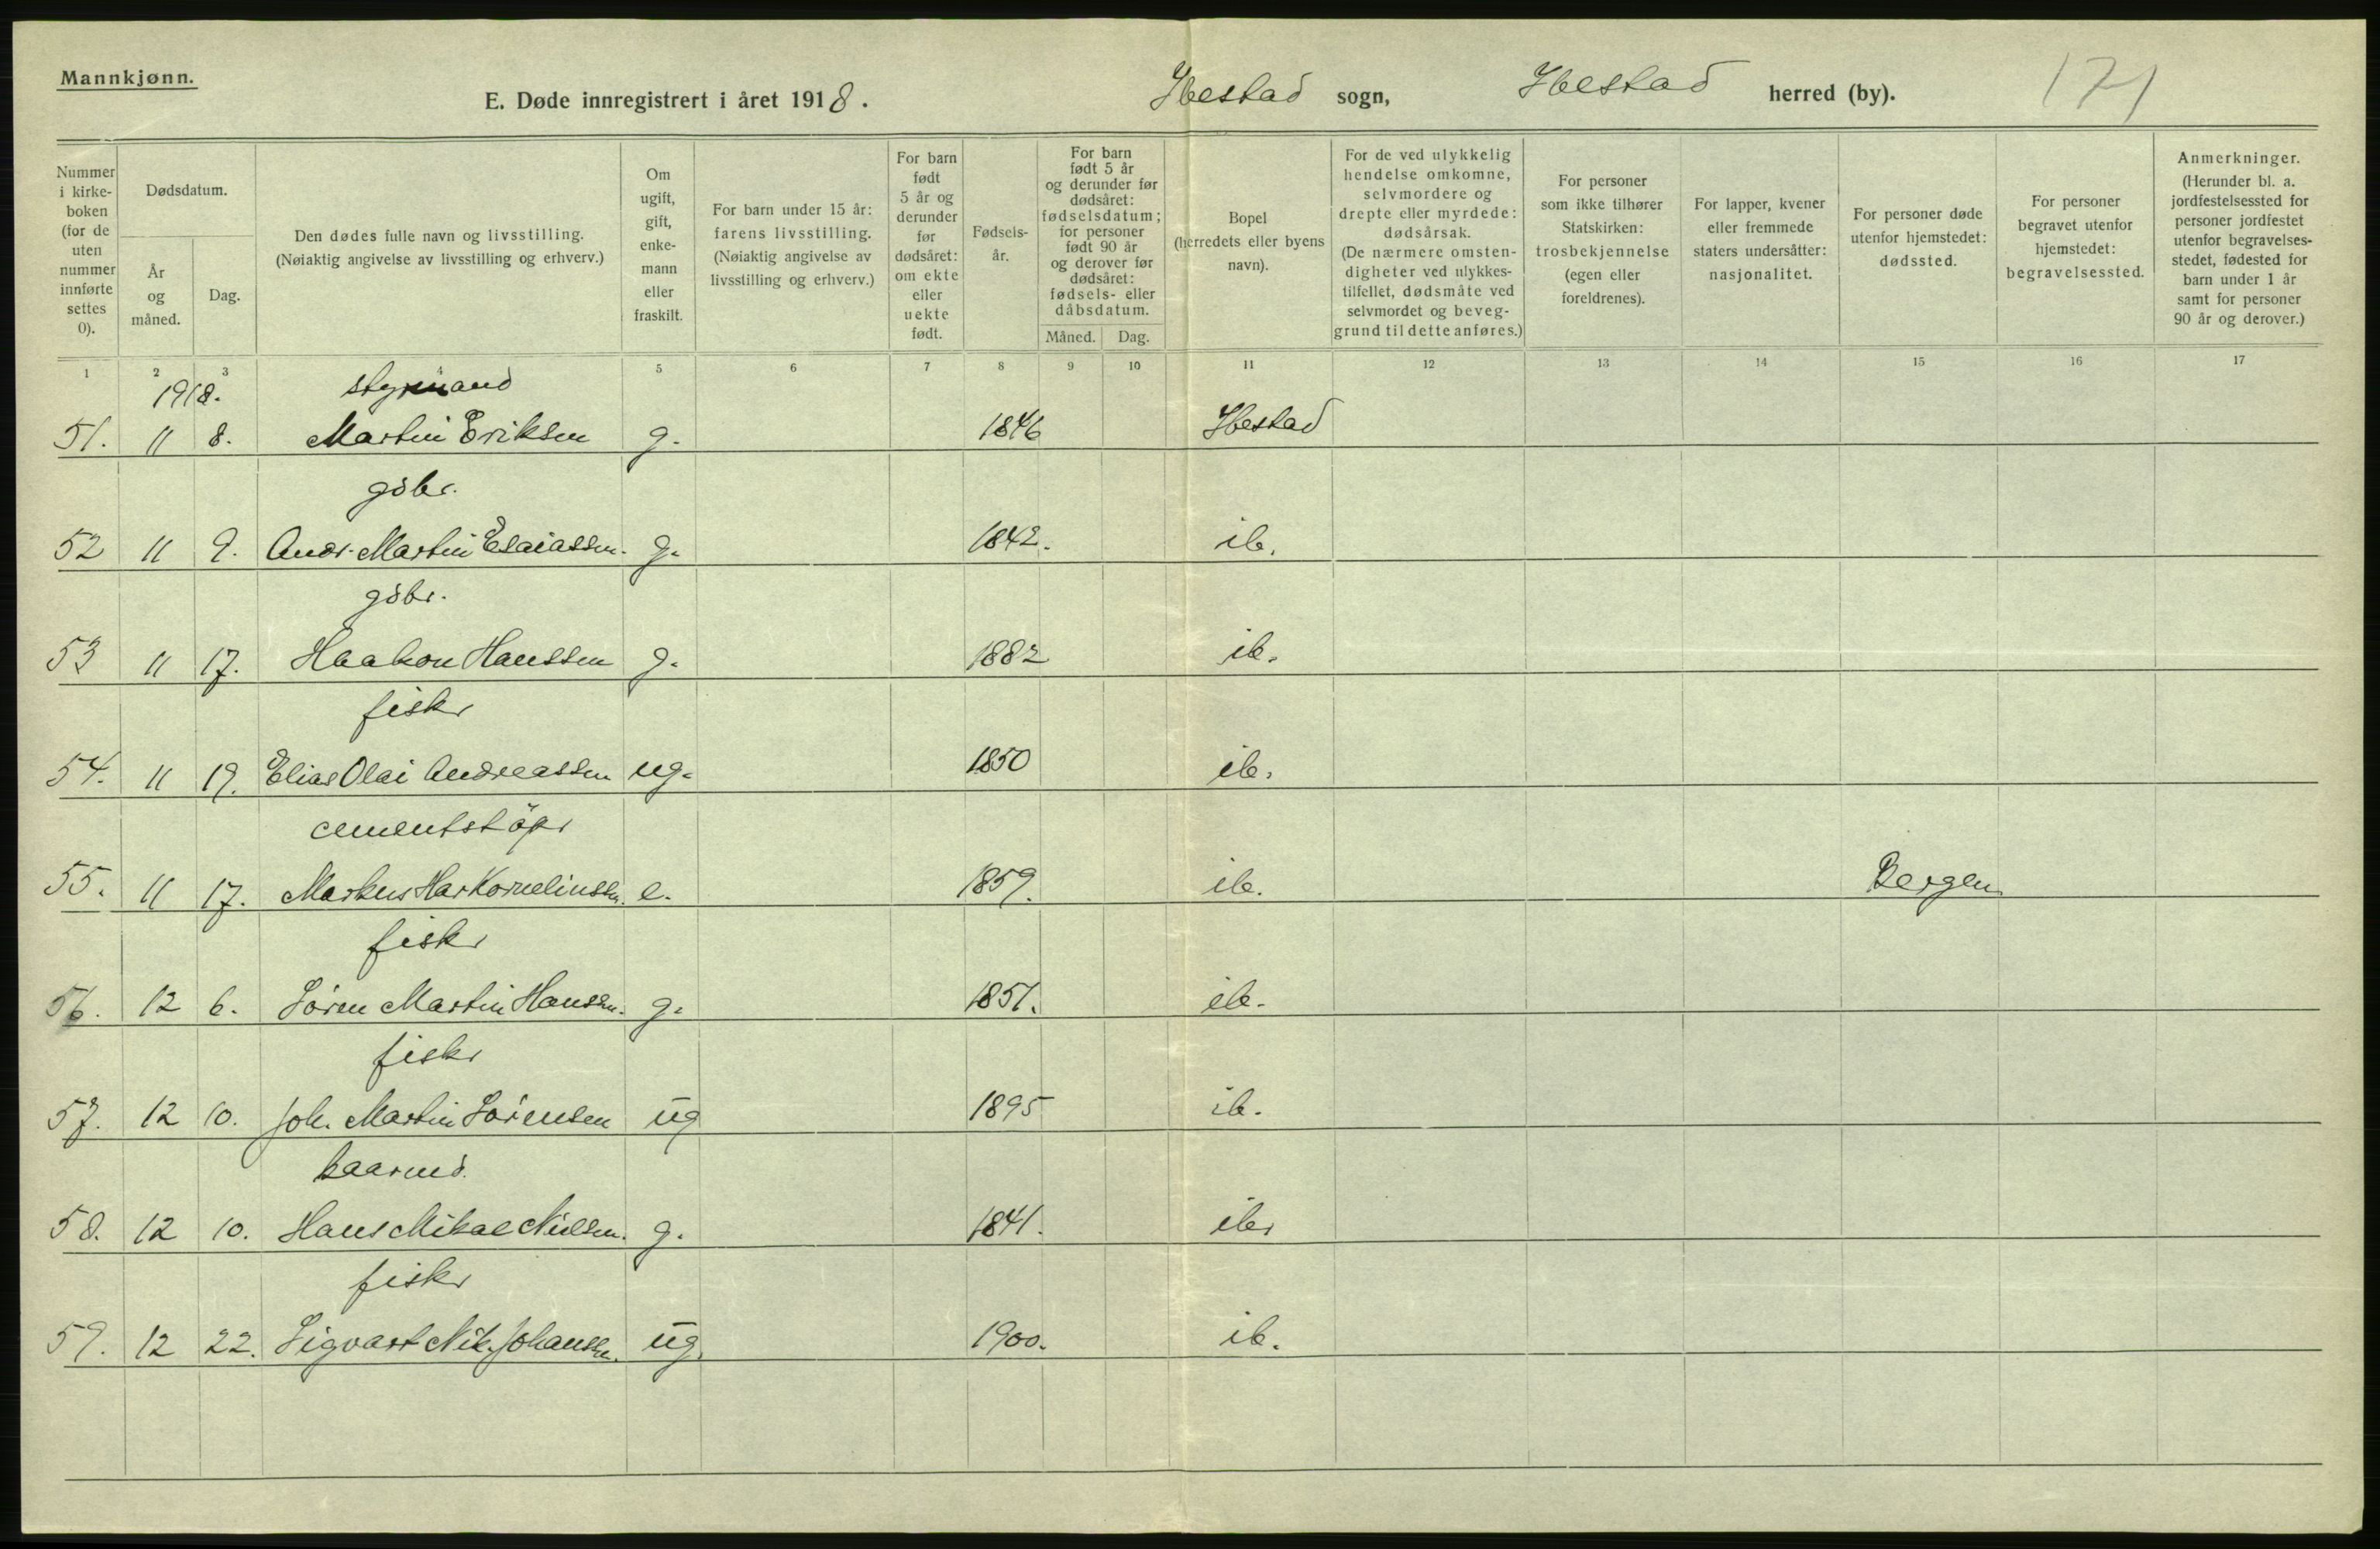 Mannkjønn.
E. Døde innregistrert i året 1918. Ibestad sogn, Ibestad herred (by). 171
Nummer i kirke-boken (for de uten nummer innførte settes 0).
Dødsdatum.
År og måned.
Dag.
Den dødes fulle navn og livsstilling.
(Nøiaktig angivelse av livsstilling og erhverv.)
Om ugift, gift, enke-mann eller fraskilt.
For barn under 15 år: farens livsstilling.
(Nøiaktig angivelse av livsstilling og erhverv.)
For barn født 5 år og derunder før dødsåret: om ekte eller uekte født.
Fødsels-år.
For barn født 5 år og derunder før dødsåret: fødselsdatum; for personer født 90 år og derover før dødsåret: fødsels- eller dåbsdatum.
Måned.
Dag.
Bopel (herredets eller byens navn).
For de ved ulykkelig hendelse omkomne, selvmordere og drepte eller myrdede: dødsårsak. (De nærmere omsten-digheter ved ulykkes-tilfellet, dødsmåte ved selvmordet og beveg-grund til dette anføres.)
For personer som ikke tilhører Statskirken: trosbekjennelse (egen eller foreldrenes).
For lapper, kvener eller fremmede staters undersåtter: nasjonalitet.
For personer døde utenfor hjemstedet: dødssted.
For personer begravet utenfor hjemstedet: begravelsessted.
Anmerkninger.
(Herunder bl. a. jordfestelsessted for personer jordfestet utenfor begravelses-stedet, fødested for barn under 1 år samt for personer 90 år og derover.)
1 2 3 4 5 6 7 8 9 10 11 12 13 14 15 16 17
1918. styrmand
51. 11 8. Martin Eriksen g. 1846 Ibestad
gdbr.
52 11 9. Andr. Martin Esaiassen. g. 1842. ib.
gdbr.
53 11 17. Haakon Hanssen g. 1882 ib.
fiskr
54. 11 19. Elias Olai Andreassen ug. 1850 ib.
cementstöpr
55. 11 17. Markus Har Korneliussn. e. 1859. ib. Bergen
fiskr
56. 12 6. Sören Martin Hanssn. g. 1851. ib.
fiskr
57. 12 10. Joh. Martin Sörensen ug 1895 ib.
kaarmd.
58. 12 10. Hans Mikal Nielsen. g. 1841. ib.
fiskr
59. 12 22. Sigvart Nik. Johanssn. ug. 1900. ib.